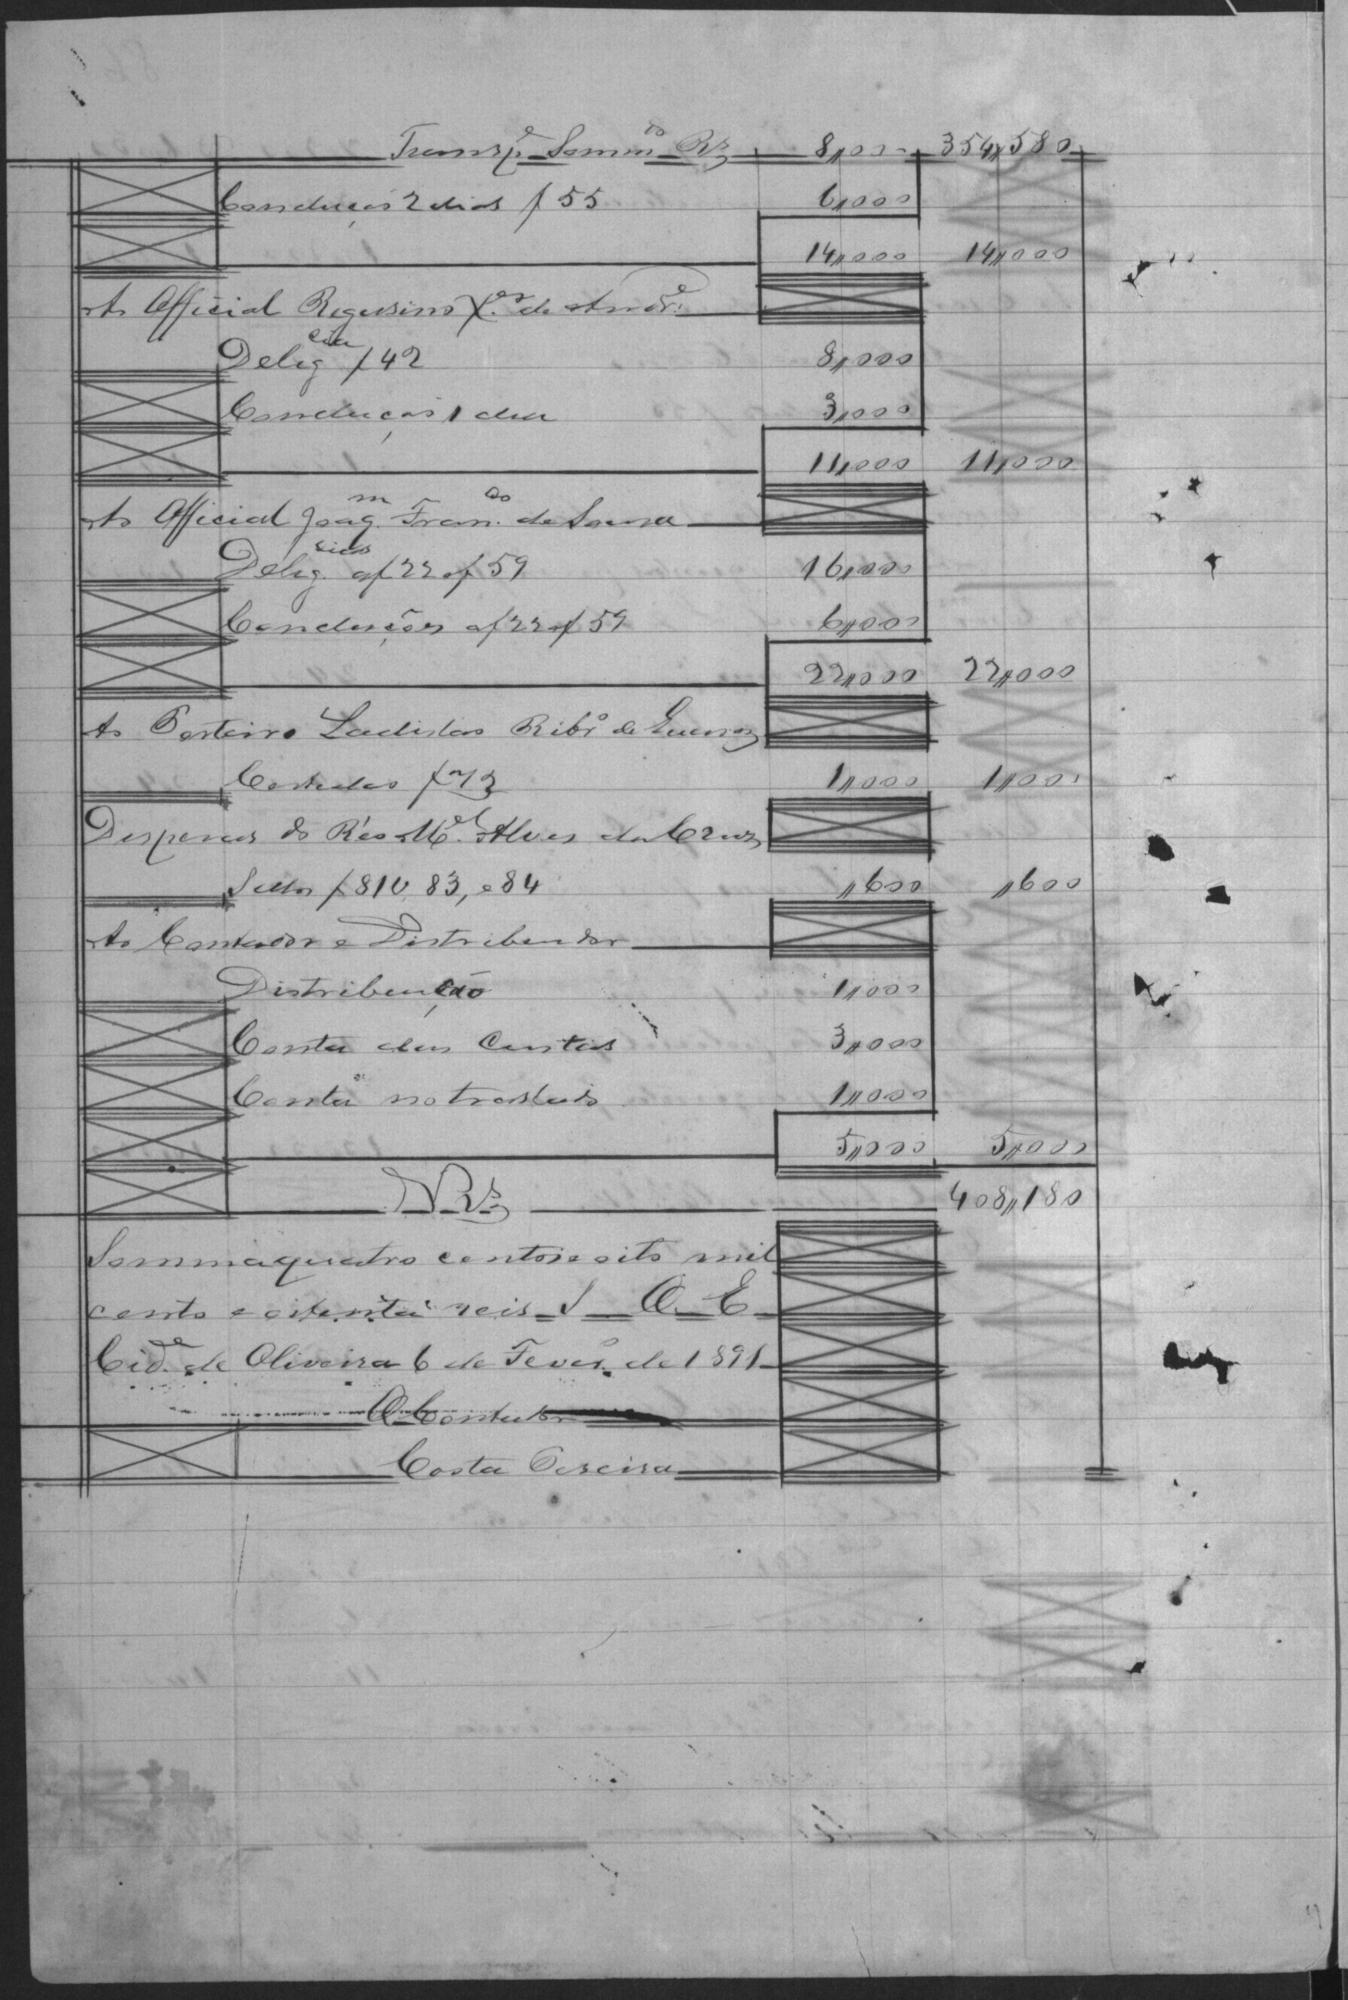 Transp.e Somm.as Rs 8,,000 354,,580
Conducçaõ 2 dias f 55 6,,000
14,,000 14,,000
Ao Official de
Delig.cia f 42 8,,000
Conducçaõ 1 dia 3,,000
11,,000 11,,000
Ao Official Joaq.m Fran.co de Sousa
Delig.cias af 22 af 59 16,,000
Conducções af 22 af 59 6,,000
22,,000 22,,000
Ao Porteiro Ladislao Ribr.o de
f 73 1,,000 1,,000
Despezas do Réo M.el Alves da Cruz
Sellos f 81 V, 83, e 84 ,,600 ,,600
Ao Contador e Distribuidor
Distribuição 1,,000
Conta das Custas 3,,000
Conta no traslado 1,,000
5,,000 5,,000
Rs 408,,180
Somma quatro centos e oito mil
cento e oitenta reis S. O. E
Cid.e de Oliveira 6 de Fever.o de 1891
O Contador
Costa Pereira